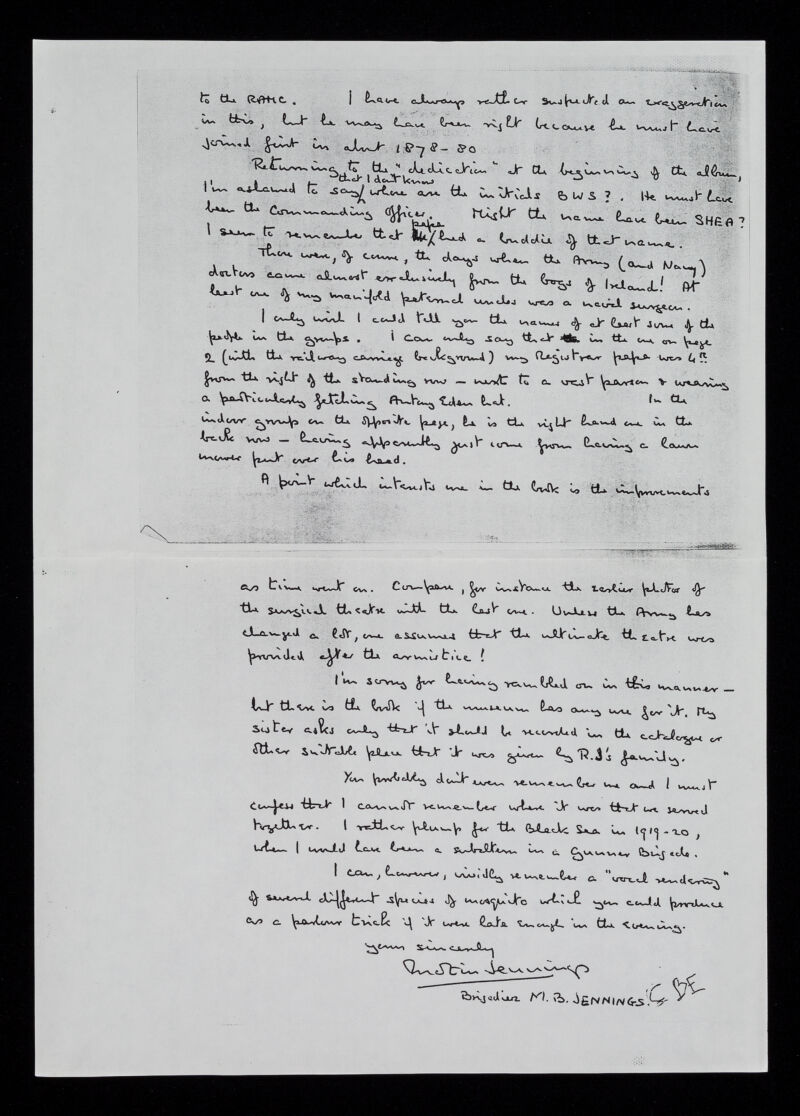 to the RAMC. I have always rather suspected an exaggeration
in this, but he may have been right because he must have
joined first in about 1878-80
Returning to the "dedication" at the beginning of the album,
that I don't know
I'm ashamed to say/where are the initials BWS?. He must have
been the Commanding Officer. Might the name have been SHEA?
papa
I seem to remember that /had a buddie of that name.
There were, of course, the days when the Army (and Navy)
doctors came almost exclusively from the bogs of Ireland! At
least one of my manifold paternal uncles was a naval surgeon.
I only wish I could tell you the names of at least some of the
people in the groups. I can only say that in the one on page
2 (with the railway carriage background) my Registrar papa was 4th
from the right of the standing row — next to a vast parson & wearing
a particularly fetching Antony Eden hat. In the
indoor group on the opposite page, he is the right hand one in the
back row — having apparently just come from having a lawn
mower put over his head.
A point which interests me in the book is the improvements
as time went on. Compare, for instance the earlier photos of
the surgical theatre with the last one. Unless the Army has
changed a lot, one assumes that the ultimate theatre was
provided after the armistice!
I'm sorry for having rambled on in this manner —
but there is the book if the museum has any use for it. My
sister asks only that it should be recorded in the catalogue or
other suitable place that it was given by R.J's family.
You probably don't even remember me and I must
confess that I cannot remember where it was that we served
together. I rather plump for the Black Sea in 1919-20,
when I would have been a subaltern in a Gunner Brigade.
I can, however, vividly remember a "vocal rendering"
of several different species of mosquito which you could produce
as a parlour trick if it were late enough in the evening.
Yours sincerely
Jennings
Brigadier M. B. JENNINGS. CBE